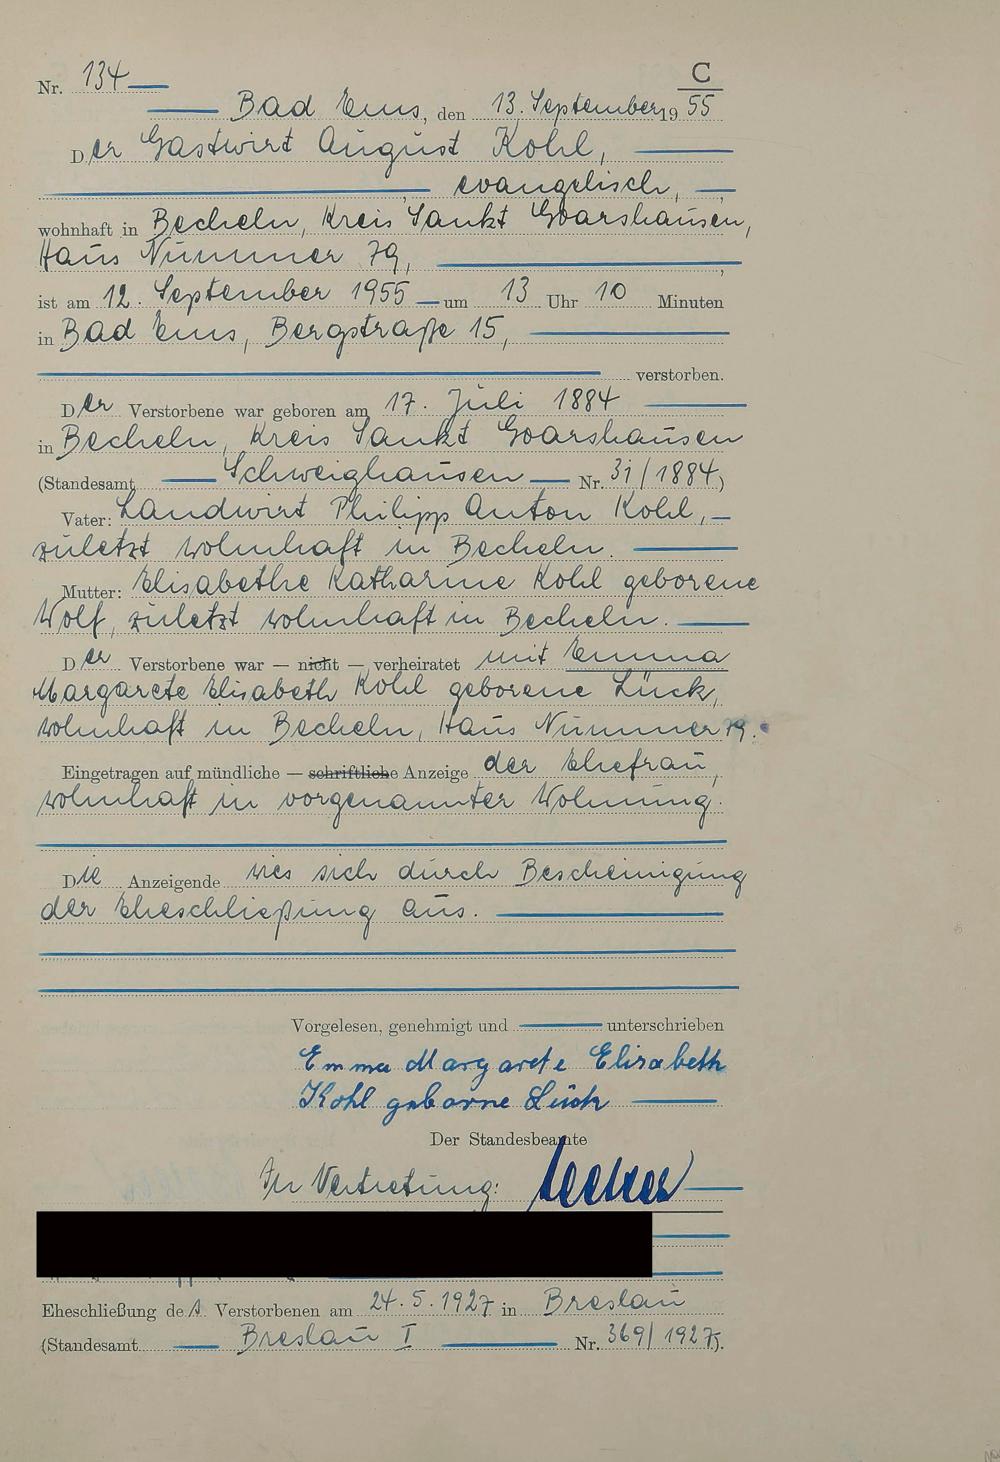 Nr. 134
C
Bad Ems, den 13. September 1955
Der Gastwirt August Kohl,
evangelisch,
wohnhaft in Becheln, Kreis Sankt Goarshausen,
Haus Nummer 79,
ist am 12. September 1955 um 13 Uhr 10 Minuten
in Bad Ems, Bergstraße 15,
verstorben.
Der Verstorbene war geboren am 17. Juli 1884
in Becheln, Kreis Sankt Goarshausen
(Standesamt Schweighausen Nr. 31/1884)
Vater: Landwirt Philipp Anton Kohl,
zuletzt wohnhaft in Becheln.
Mutter: Elisabethe Katharine Kohl geborene
Wolf, zuletzt wohnhaft in Becheln.
Der Verstorbene war — nicht — verheiratet mit Emma
Margarete Elisabeth Kohl geborene Lück,
wohnhaft in Becheln, Haus Nummer 79.
Eingetragen auf mündliche — schriftliche Anzeige der Ehefrau,
wohnhaft in vorgenannter Wohnung.
Die Anzeigende wies sich durch Bescheinigung
der Eheschließung aus.
Vorgelesen, genehmigt und unterschrieben
Emma Margarete Elisabeth
Kohl geborne Lück
Der Standesbeamte
In Vertretung:
Eheschließung des Verstorbenen am 24.5.1927 in Breslau
(Standesamt Breslau I Nr. 369/1927).